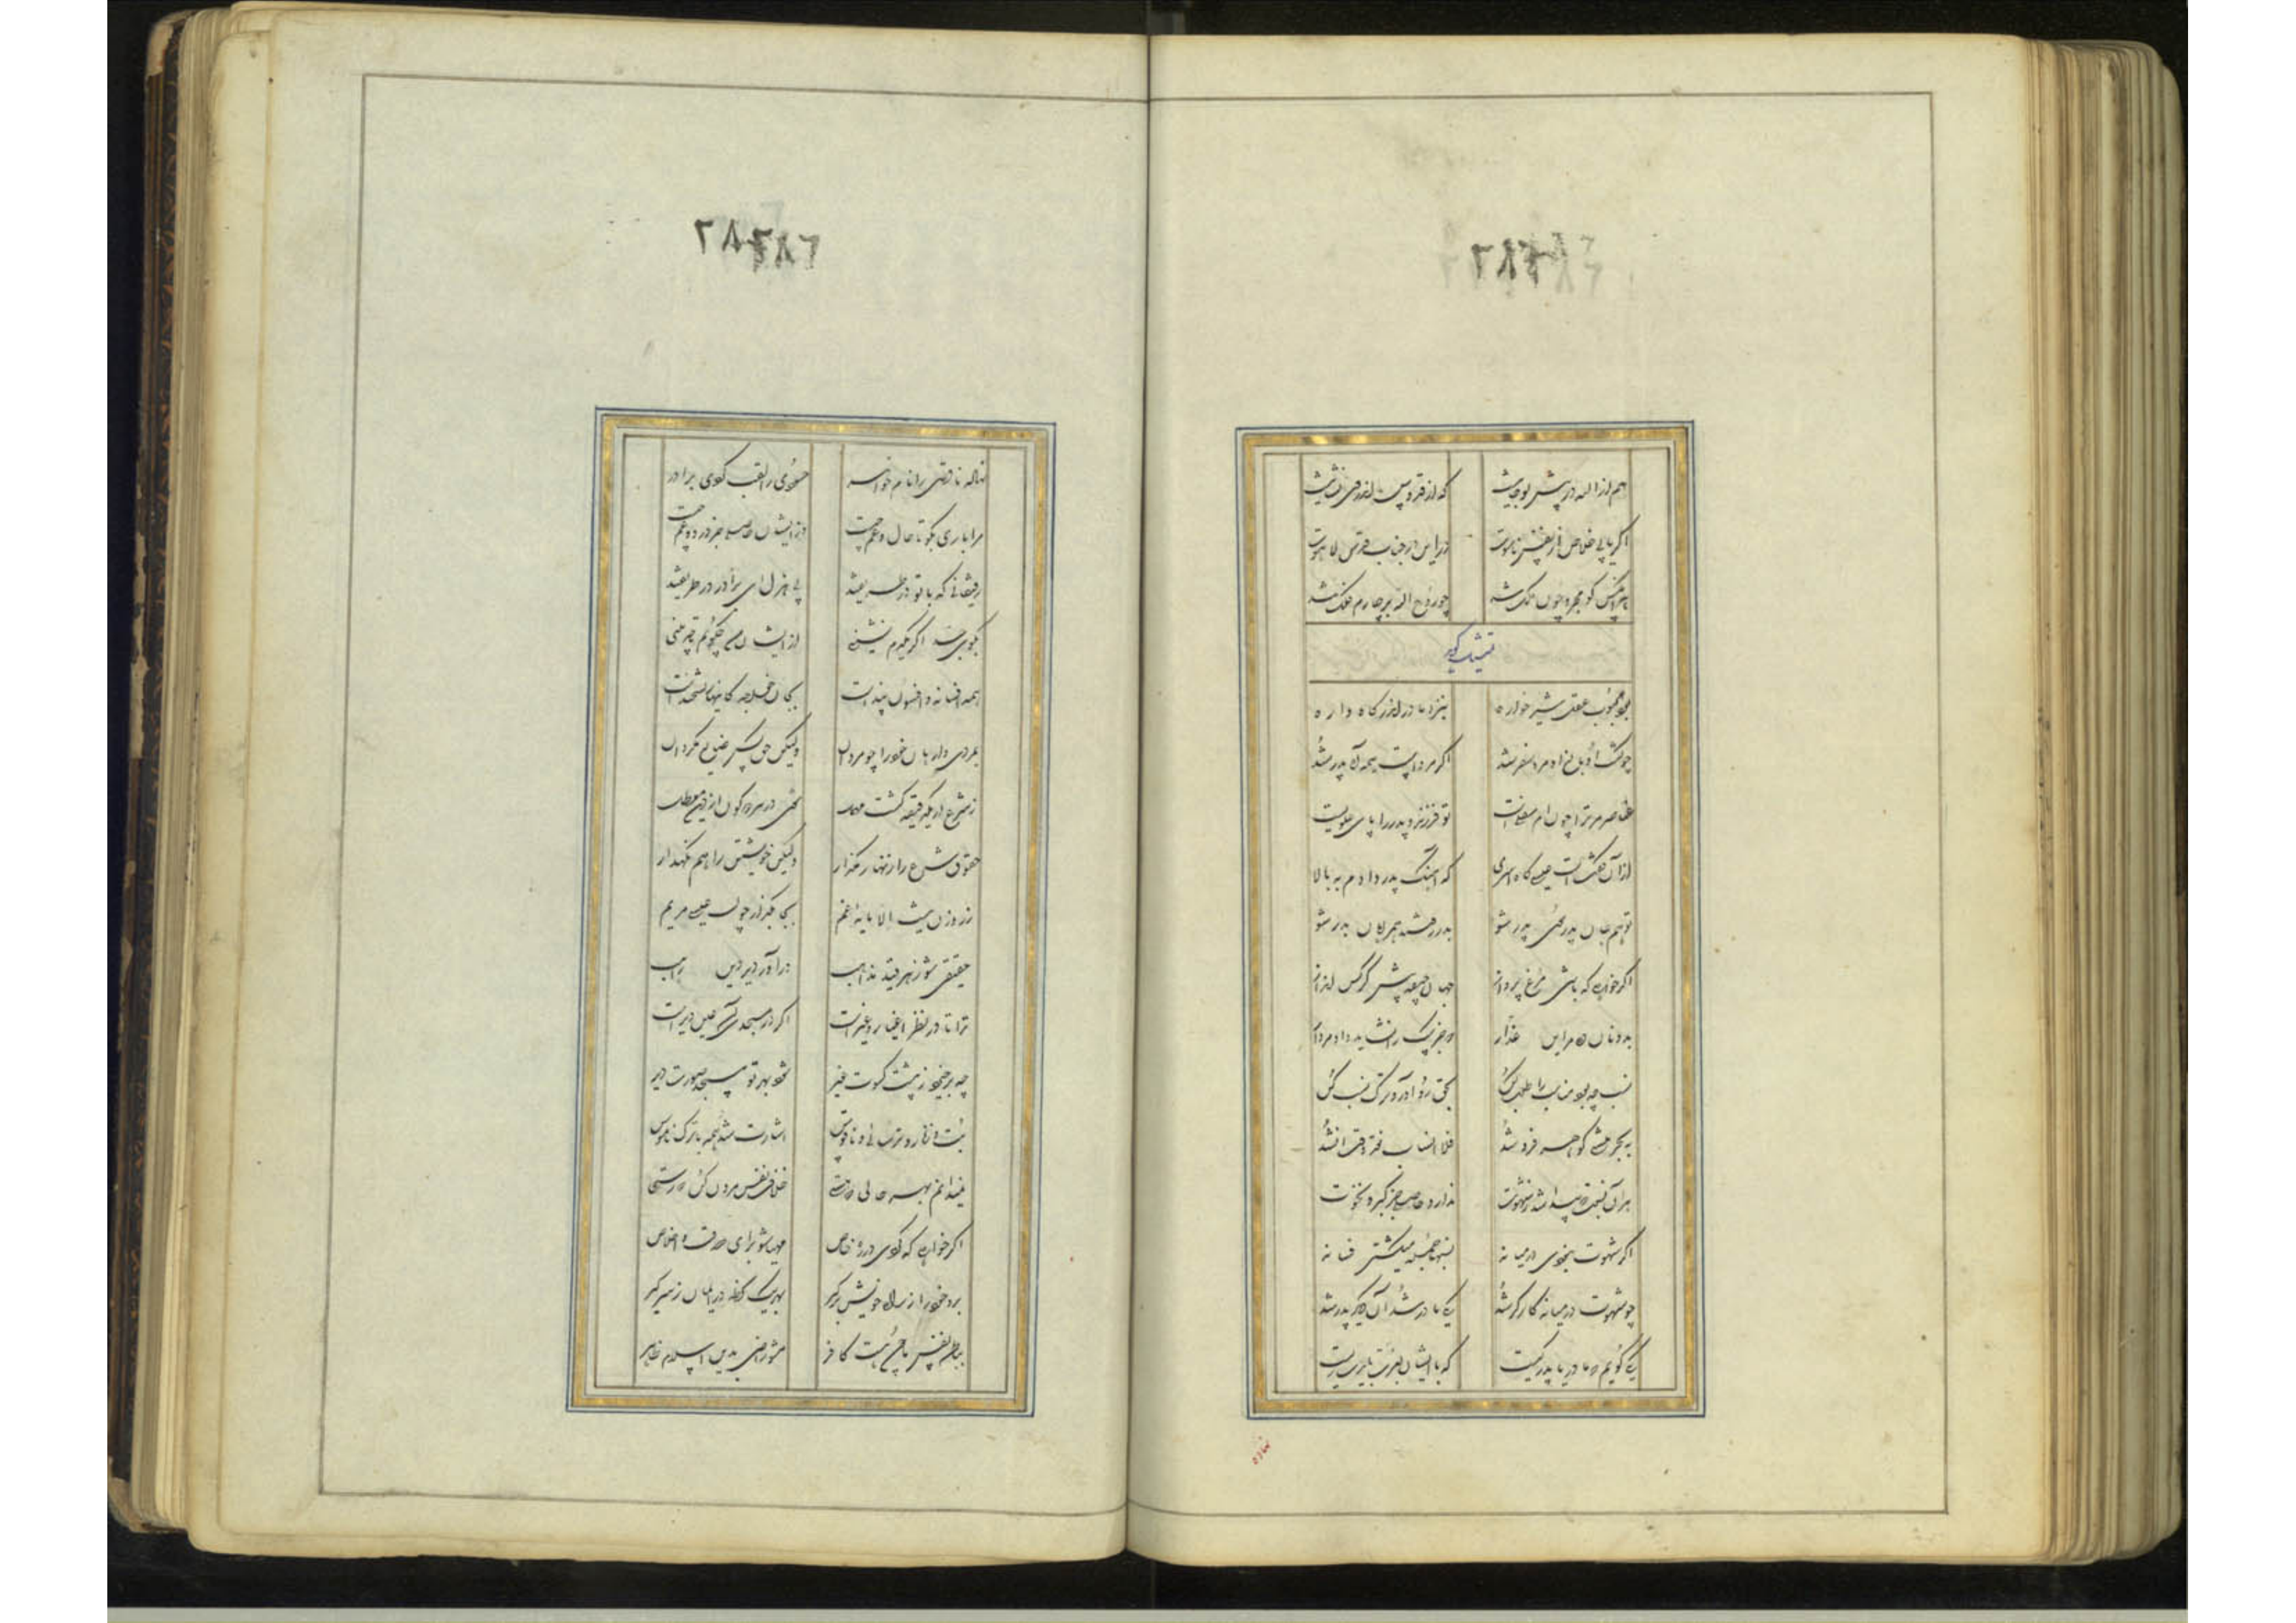 هم از الله در پیش تو جانیست که از قدوس اندر وی نشانیست
اگر یابی خلاص از نفس ناسوت درایی در جناب قدس لاهوت
هر آنکس کو مجرد چون ملک شد چو روح الله بر چارم فلک شد
بود محبوس طفل شیرخواره بنزد مادر اندر گاهواره
چو گشت او بالغ و مرد سفر شد اگر مرد است همراه پدر شد
عناصر مر ترا چون ام سفلیست تو فرزند و پدر ابای علویست
از آن گفتست عیسی گاه اسری که آهنگ پدر دارم به بالا
تو هم جان پدر سوی پدر شو بدر رفتند همراهان بدر شو
اگر خواهی که باشی مرغ پرواز جهان جیفه پیش کرکس انداز
بدونان ده مر این غدار که جز سگ را نشاید داد مردار
نسب چه بود مناسب را طلب کن بحق رو آور و ترک نسب کن
به بحر نیستی کو هر فرو شد فلا انساب
هر آن نسبت که پیدا شد ز شهوت ندارد حاصلی جز کبر و نخوت
اگر شهوت نبودی در میانه نسبها جمله میگشتی فسانه
چو شهوت در میانه کارگر شد یکی مادر شد آن دیگر پدر شد
نمی گویم که مادر یا پدر کیست که با ایشان بعزت بایدت زیست
۲۸۲
نهاده ناقصی را نام خواهر حسودی را لقب کردی برادر
مرا باری بگو تا خال و عم چیست وز ایشان حاصلی جز درد و غم چیست
رفیقانی که با تو در طریقند پی هزل ای برادر در طریقند
بکوی جد اگر یکدم نشینی از ایشان من چگویم تا چه بینی
همه افسانه و افسون و بند است بجان خواجه کاینها ریشخند است
بمردی وارهان خود را چو مردان ولیکن حق کس ضایع مگردان
ز شرع ار یک دقیقه گشت مهمل شوی در هر دو کون از دین معطل
حقوق شرع را زنهار مگذار ولیکن خویشتن را هم نگهدار
زر و زن نیست الا مایه غم بجا بگذار چون عیسی مریم
حنیفی شو ز هر قید مذاهب درآ در دیر دین راهب
ترا تا در نظر اغیار و غیر است اگر در مسجدی آن عین دیر است
چو برخیزد ز پیشت کسوت غیر شود بهر تو مسجد صورت دیر
بت و زنار و ترسایی و ناقوس اشارت شد همه با ترک ناموس
نمیدانم بهر حالی که هستی خلاف نفس بیرون کن که رستی
اگر خواهی که گردی بنده خاص مهیا شو برای صدق و اخلاص
برو خود را ز راه خویش برگیر بهر یک لحظه در ایمان ز سر گیر
بباطن نفس ما چون هست کافر مشو راضی بدین اسلام ظاهر